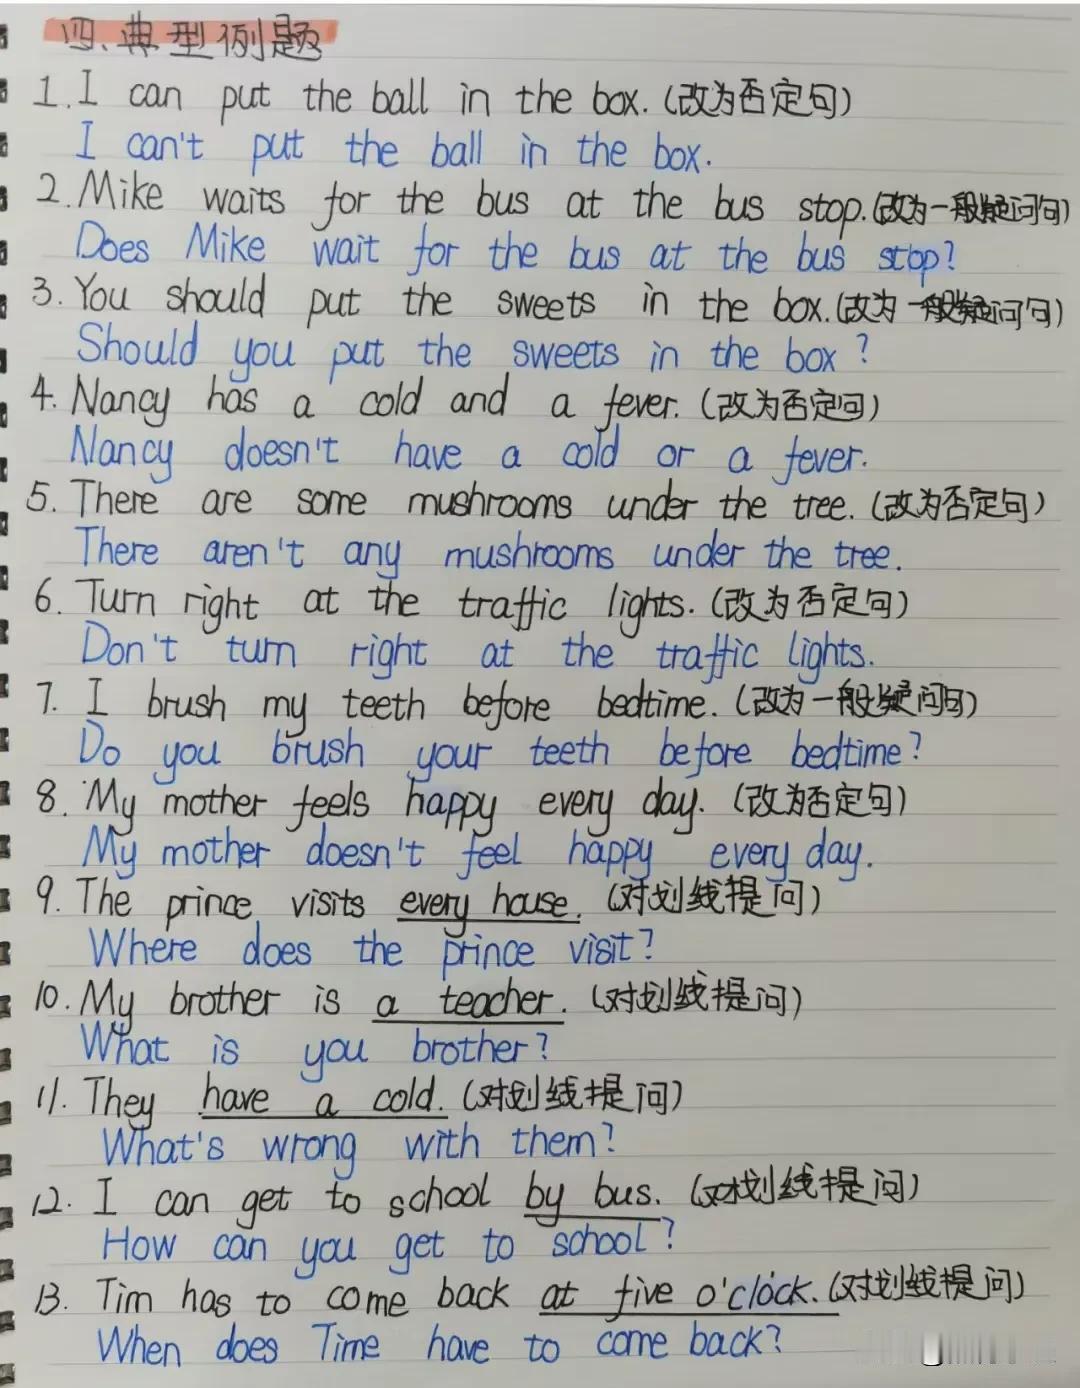 四、典型例题
1. I can put the ball in the box. (改为否定句)
I can't put the ball in the box.
2. Mike waits for the bus at the bus stop. (改为一般疑问句)
Does Mike wait for the bus at the bus stop?
3. You should put the sweets in the box. (改为一般疑问句)
Should you put the sweets in the box?
4. Nancy has a cold and a fever. (改为否定问)
Nancy doesn't have a cold or a fever.
5. There are some mushrooms under the tree. (改为否定句)
There aren't any mushrooms under the tree.
6. Turn right at the traffic lights. (改为否定句)
Don't turn right at the traffic lights.
7. I brush my teeth before bedtime. (改为一般疑问句)
Do you brush your teeth before bedtime?
8. My mother feels happy every day. (改为否定句)
My mother doesn't feel happy every day.
9. The prince visits every house. (对划线提问)
Where does the prince visit?
10. My brother is a teacher. (对划线提问)
What is you brother?
11. They have a cold. (对划线提问)
What's wrong with them?
12. I can get to school by bus. (对划线提问)
How can you get to school?
13. Tim has to come back at five o'clock. (对划线提问)
When does Time have to come back?